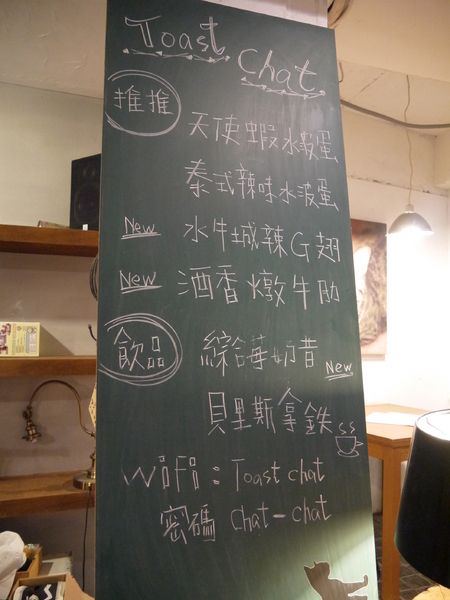 Toast Chat
推推
天使蝦水波蛋
泰式辣味水波蛋
New 水牛城辣G翅
New 酒香燉牛肋
飲品 綜合莓奶昔 New
貝里斯拿鉄
WiFi : Toast chat
密碼 Chat-chat